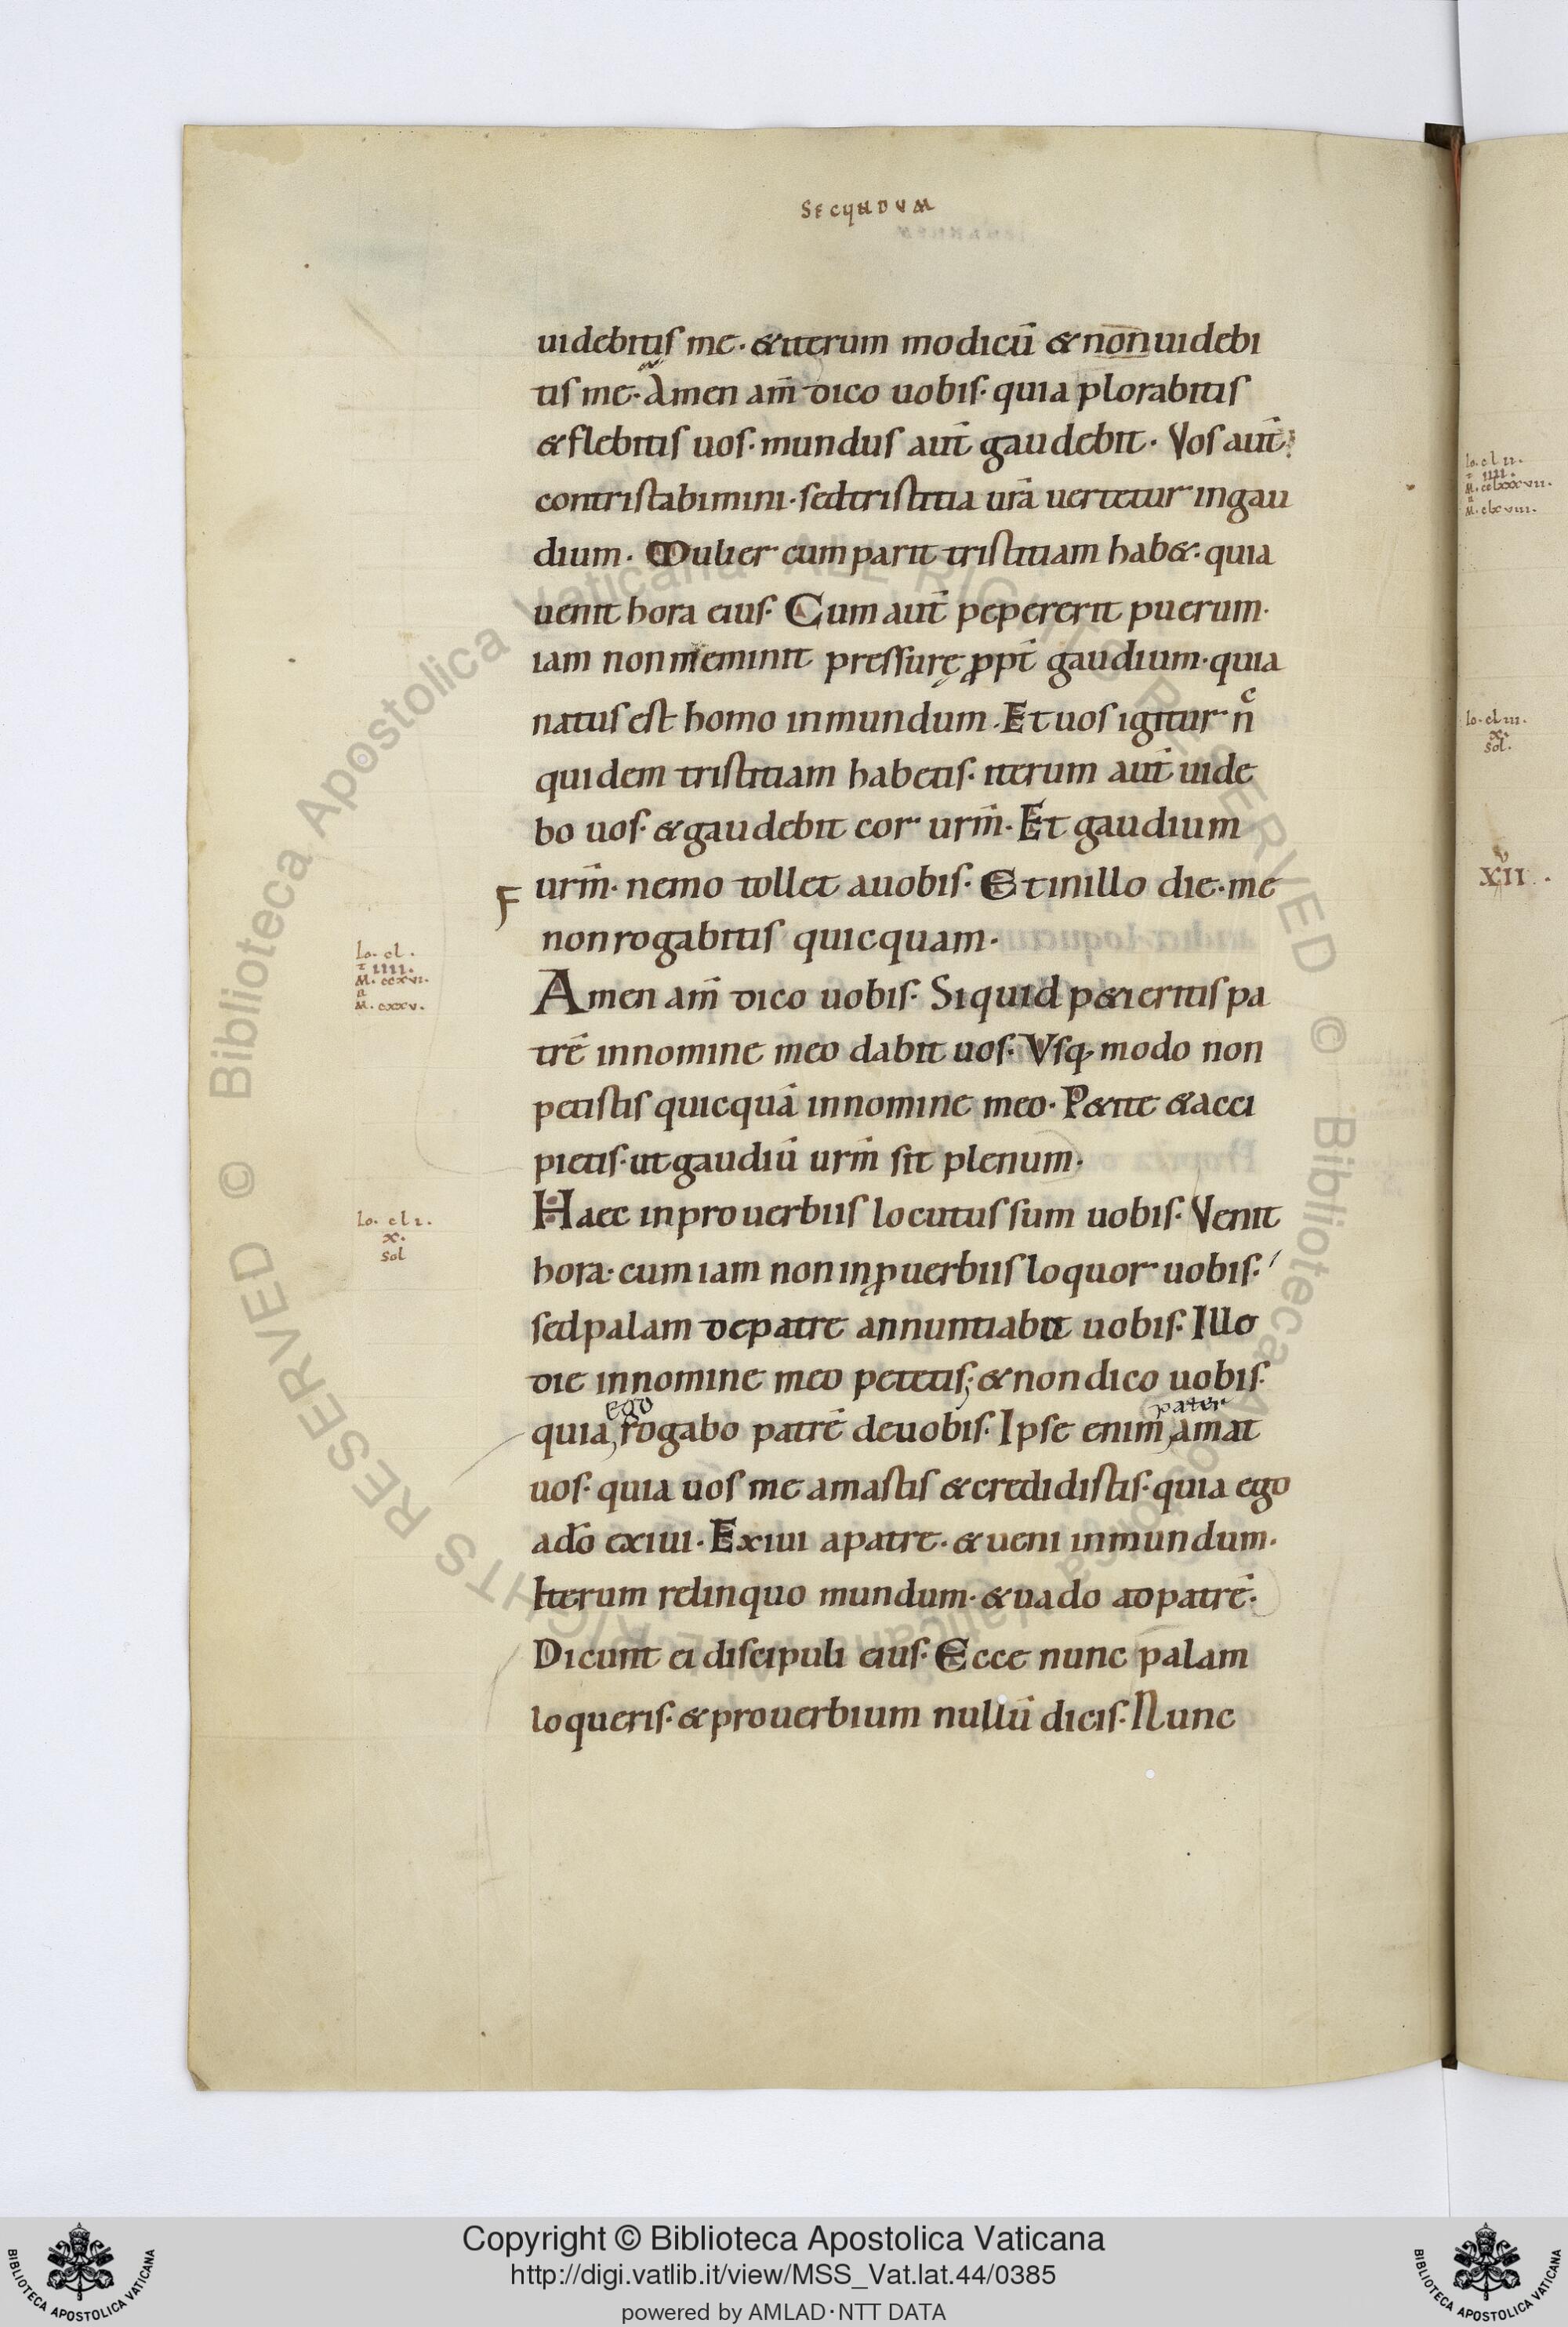 SECUNDUM
uidebitis me · & iterum modicū & non uidebi
tis me · Amen am̄ dico uobis · quia plorabitis
& flebitis uos · mundus aut̄ gaudebit · Vos aut̄
contristabimini · sed tristitia ur̄a uertetur in gau
dium · Mulier cum parit tristitiam hab& · quia
uenit hora eius · Cum aut̄ pepererit puerum ·
iam non meminit pressurę ꝓpt̄ gaudium · quia
natus est homo in mundum · Et uos igitur nͨ
quidem tristitiam habetis · iterum aut̄ uide
bo uos · & gaudebit cor urm̄ · Et gaudium
F urm̄ · nemo tollet a uobis · Et in illo die · me
non rogabitis quicquam ·
Io · cl ·
· IIII ·
M · ccxvi ·
M · cxxv ·
Amen am̄ dico uobis · Si quid p&ieritis pa
trē in nomine meo dabit uos · Vsq; modo non
petistis quicquā in nomine meo · P&ite & acci
pietis · ut gaudiū urm̄ sit plenum ·
Io · cl i ·
x ·
sol
Haec in prouerbiis locutus sum uobis · Venit
hora · cum iam non in ꝓuerbiis loquor uobis ·
sed palam de patre annuntiabit uobis · Illo
die in nomine meo petetis ; & non dico uobis ·
ego pater
quia rogabo patrē de uobis · Ipse enim amat
uos · quia uos me amastis & credidistis · quia ego
a dō exiui · Exiui a patre · & ueni in mundum ·
Iterum relinquo mundum · & uado ad patrē ·
Dicunt ei discipuli eius · Ecce nunc palam
loqueris · & prouerbium nullū dicis · Nunc
Io · cl ii ·
· IIII ·
M · cclxxxvii ·
M · clxviii ·
Io · cl iii ·
x ·
sol ·
XVII ·
Copyright © Biblioteca Apostolica Vaticana
http://digi.vatlib.it/view/MSS_Vat.lat.44/0385
powered by AMLAD·NTT DATA
BIBLIOTECA APOSTOLICA VATICANA
BIBLIOTECA APOSTOLICA VATICANA
© Biblioteca Apostolica Vaticana ALL RIGHTS RESERVED
© Biblioteca Apostolica Vaticana ALL RIGHTS RESERVED